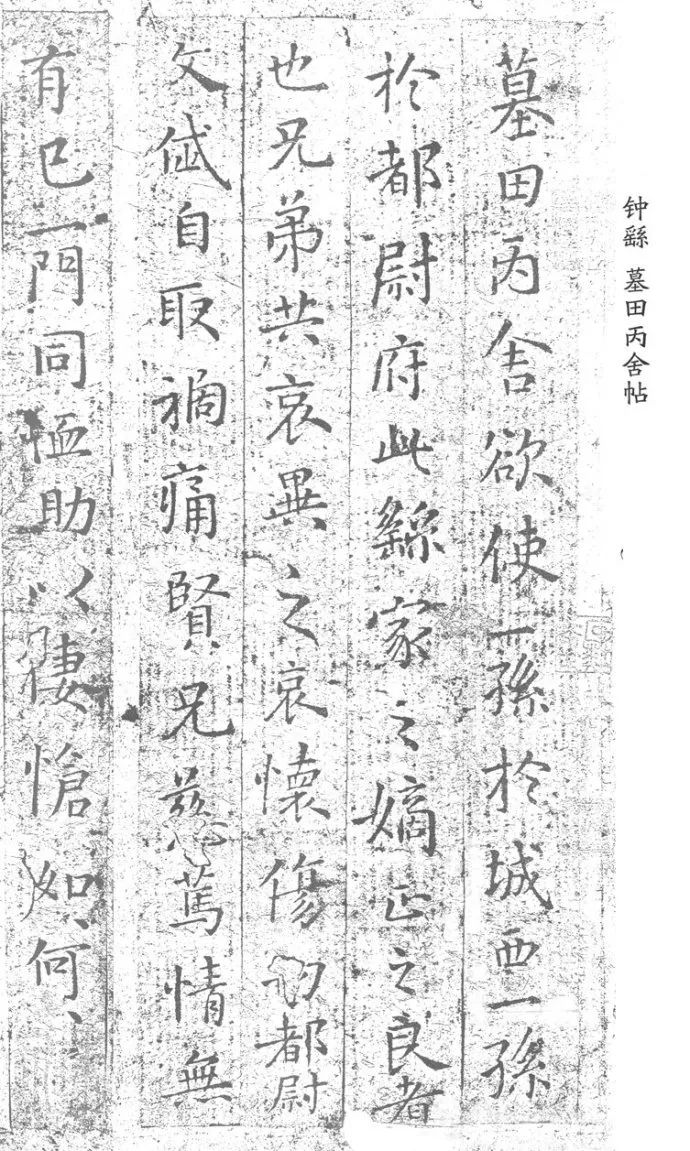 钟繇 墓田丙舍帖
墓田丙舍欲使一孫於城西一孫
於都尉府此繇家之嫡正之良者
也兄弟共哀異之哀懷傷切都尉
文岱自取禍痛賢兄慈篤情無
有已一門同恤助以悽愴如何、、